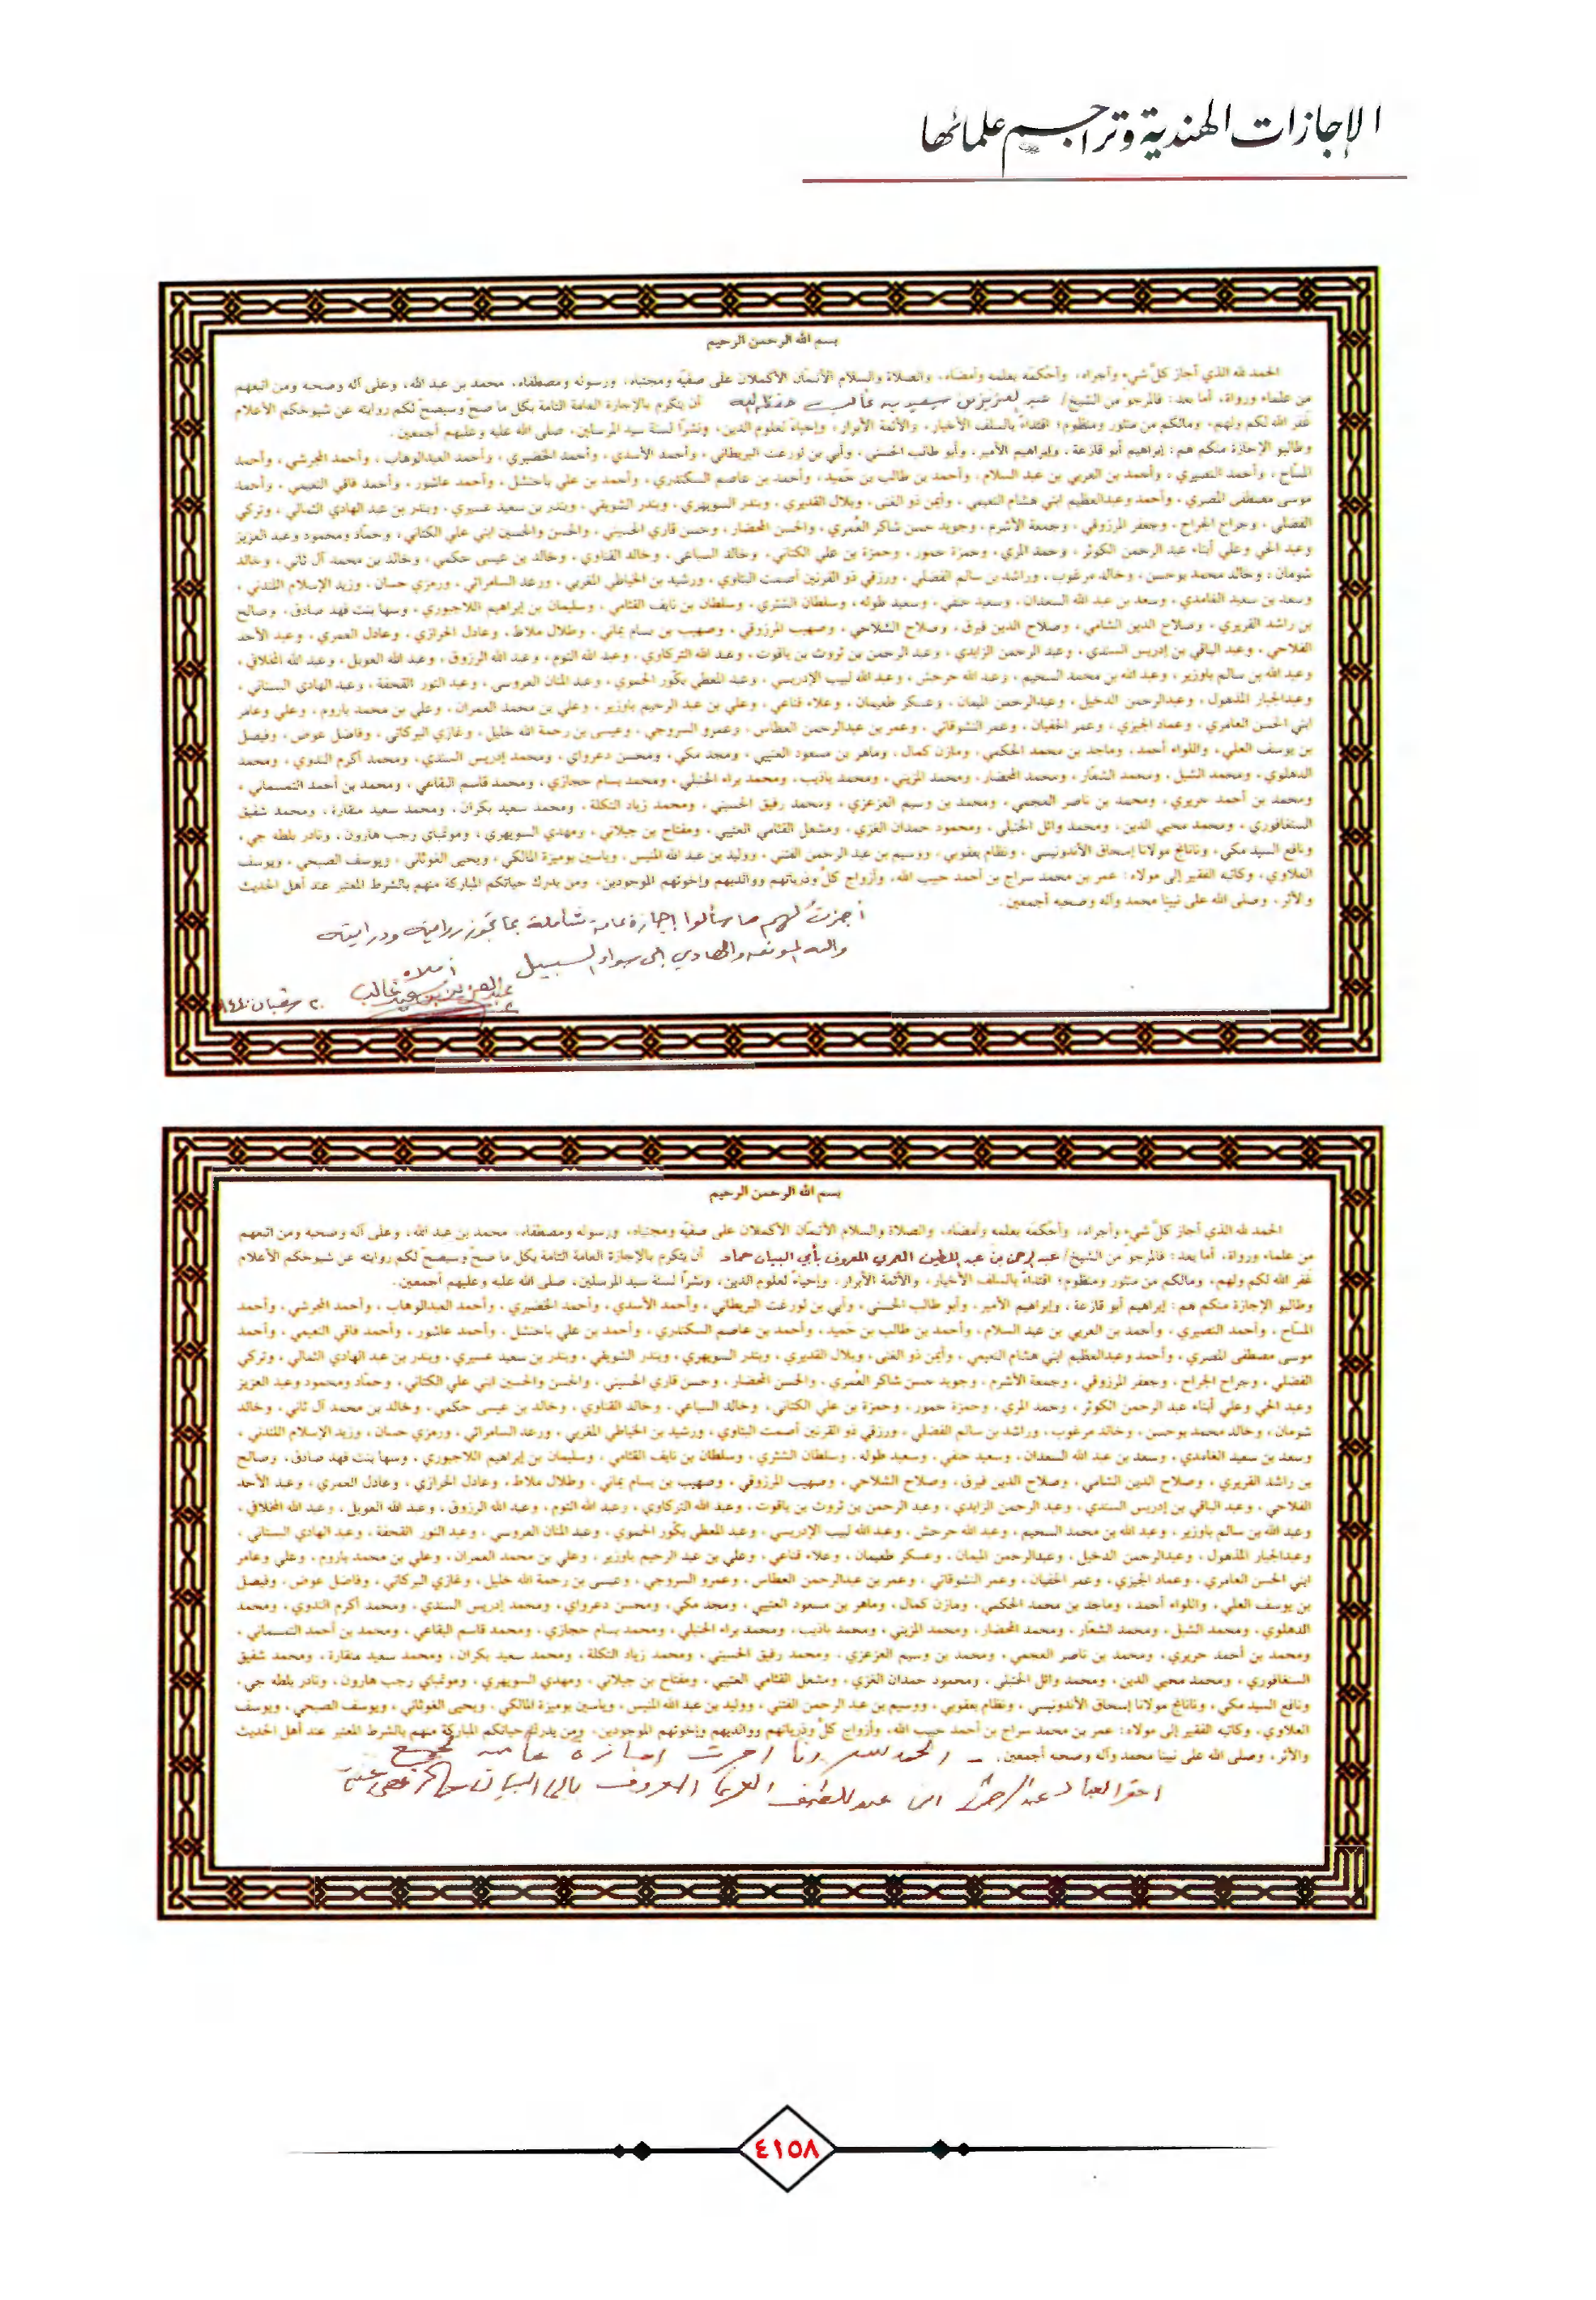 الإجازات الهندية وتراجم علمائها
بسم الله الرحمن الرحيم
الحمد لله الذي أجاز كلَّ شيءٍ وأجراه، وأحكمَه بعلمه وأمضاه، والصلاة والسلام الأتمّان الأكملان على صفيّه ومجتباه، ورسوله ومصطفاه، محمد بن عبد الله، وعلى آله وصحبه ومن اتبعهم
من علماء ورواة، أما بعد: فالمرجو من الشيخ/ عبد العزيز بن سعيد بن غالب حفظه الله أن يتكرم بالإجازة العامة التامة بكل ما صحّ وسيصحّ لكم روايته عن شيوخكم الأعلام
غفر الله لكم ولهم، ومالكم من منثور ومنظوم؛ اقتداءً بالسلف الأخيار، والأئمة الأبرار، وإحياءً لعلوم الدين، ونشرًا لسنة سيد المرسلين، صلى الله عليه وعليهم أجمعين.
وطالبو الإجازة منكم هم: إبراهيم أبو قازعة، وإبراهيم الأمير، وأبو طالب الحسني، وأبي بن نورغت البريطاني، وأحمد الأسدي، وأحمد الخضيري، وأحمد العبدالوهاب، وأحمد المجرشي، وأحمد
المسّاح، وأحمد النصيري، وأحمد بن العربي بن عبد السلام، وأحمد بن طالب بن حَميد، وأحمد بن عاصم السكندري، وأحمد بن علي باحنشل، وأحمد عاشور، وأحمد فاقي النعيمي، وأحمد
موسى مصطفى المصري، وأحمد وعبدالعظيم ابني هشام النعيمي، وأيمن ذو الغنى، وبلال القديري، وبندر السويهري، وبندر الشويقي، وبندر بن سعيد عسيري، وبندر بن عبد الهادي الثمالي، وتركي
الفضلي، وجراح الجراح، وجعفر المرزوقي، وجمعة الأشرم، وجويد حسن شاكر العُمري، والحسن المحضار، وحسن قاري الحسيني، والحسن والحسين ابني علي الكتاني، وحمّاد ومحمود وعبد العزيز
وعبد الحي وعلي أبناء عبد الرحمن الكوثر، وحمد المري، وحمزة حمور، وحمزة بن علي الكتاني، وخالد السباعي، وخالد القناوي، وخالد بن عيسى حكمي، وخالد بن محمد آل ثاني، وخالد
شومان، وخالد محمد بوحسن، وخالد مرغوب، وراشد بن سالم الفضلي، ورزقي ذو القرنين أصمت البتاوي، ورشيد بن الخياطي المغربي، ورعد السامرائي، ورمزي حسان، وزيد الإسلام اللندني،
وسعد بن سعيد الغامدي، وسعد بن عبد الله السعدان، وسعيد حنفي، وسعيد طوله، وسلطان الشثري، وسلطان بن نايف القثامي، وسليمان بن إبراهيم اللاجبوري، وسها بنت فهد صادق، وصالح
بن راشد القريري، وصلاح الدين الشامي، وصلاح الدين فيرق، وصلاح الشلاحي، وصهيب المرزوقي، وصهيب بن بسام يماني، وطلال ملاط، وعادل الحرازي، وعادل العمري، وعبد الأحد
الفلاحي، وعبد الباقي بن إدريس السندي، وعبد الرحمن الزايدي، وعبد الرحمن بن ثروت بن ياقوت، وعبد الله التركاوي، وعبد الله التوم، وعبد الله الرزوق، وعبد الله العويل، وعبد الله المخلافي،
وعبد الله بن سالم باوزير، وعبد الله بن محمد السحيم، وعبد الله حرحش، وعبد الله لبيب الإدريسي، وعبد المعطي بكّور الحموي، وعبد المنان العروسي، وعبد النور القحفة، وعبد الهادي البستاني،
وعبدالجبار المذهول، وعبدالرحمن الدخيل، وعبدالرحمن الميمان، وعسكر طعيمان، وعلاء قناعي، وعلي بن عبد الرحيم باوزير، وعلي بن محمد العمران، وعلي بن محمد باروم، وعلي وعامر
ابني الحسن العامري، وعماد الجيزي، وعمر الحفيان، وعمر النشوقاتي، وعمر بن عبدالرحمن العطاس، وعمرو السروجي، وعيسى بن رحمة الله خليل، وغازي البركاتي، وفاضل عوض، وفيصل
بن يوسف العلي، واللواء أحمد، وماجد بن محمد الحكمي، ومازن كمال، وماهر بن مسعود العتيبي، ومجد مكي، ومحسن دعرواي، ومحمد إدريس السندي، ومحمد أكرم الندوي، ومحمد
الدهلوي، ومحمد الشبل، ومحمد الشعّار، ومحمد المحضار، ومحمد المزيني، ومحمد باذيب، ومحمد براء الحنبلي، ومحمد بسام حجازي، ومحمد قاسم البقاعي، ومحمد بن أحمد التمسماني،
ومحمد بن أحمد حريري، ومحمد بن ناصر العجمي، ومحمد بن وسيم العزعزي، ومحمد رفيق الحسيني، ومحمد زياد التكلة، ومحمد سعيد بكران، ومحمد سعيد منقارة، ومحمد شفيق
السنغافوري، ومحمد محيي الدين، ومحمد وائل الحنبلي، ومحمود حمدان الغزي، ومشعل القثامي العتيبي، ومفتاح بن جيلاني، ومهدي السويهري، وموتباي رجب هارون، ونادر بلطه جي،
ونافع السيد مكي، ونانانج مولانا إسحاق الأندونيسي، ونظام يعقوبي، ووسيم بن عبد الرحمن الفتني، ووليد بن عبد الله المنيس، وياسين بوميزة المالكي، ويحيى الغوثاني، ويوسف الصبحي، ويوسف
العلاوي، وكاتبه الفقير إلى مولاه: عمر بن محمد سراج بن أحمد حبيب الله، وأزواج كلٍّ وذرياتهم ووالديهم وإخوتهم الموجودين، ومن يدرك حياتكم المباركة منهم بالشرط المعتبر عند أهل الحديث
والأثر، وصلى الله على نبينا محمد وآله وصحبه أجمعين.
أجزتُ لهم ما سألوا إجازة عامة شاملة بما تجوز روايته ودرايته
والله الموفق والهادي إلى سواء السبيل
أملاه
عبد العزيز بن سعيد غالب
٢٠ شعبان ١٤٤٠
بسم الله الرحمن الرحيم
الحمد لله الذي أجاز كلَّ شيءٍ وأجراه، وأحكمَه بعلمه وأمضاه، والصلاة والسلام الأتمّان الأكملان على صفيّه ومجتباه، ورسوله ومصطفاه، محمد بن عبد الله، وعلى آله وصحبه ومن اتبعهم
من علماء ورواة، أما بعد: فالمرجو من الشيخ/ عبد الرحمن بن عبد اللطيف العربي المعروف بأبي البيان حماد أن يتكرم بالإجازة العامة التامة بكل ما صحّ وسيصحّ لكم روايته عن شيوخكم الأعلام
غفر الله لكم ولهم، ومالكم من منثور ومنظوم؛ اقتداءً بالسلف الأخيار، والأئمة الأبرار، وإحياءً لعلوم الدين، ونشرًا لسنة سيد المرسلين، صلى الله عليه وعليهم أجمعين.
وطالبو الإجازة منكم هم: إبراهيم أبو قازعة، وإبراهيم الأمير، وأبو طالب الحسني، وأبي بن نورغت البريطاني، وأحمد الأسدي، وأحمد الخضيري، وأحمد العبدالوهاب، وأحمد المجرشي، وأحمد
المسّاح، وأحمد النصيري، وأحمد بن العربي بن عبد السلام، وأحمد بن طالب بن حَميد، وأحمد بن عاصم السكندري، وأحمد بن علي باحنشل، وأحمد عاشور، وأحمد فاقي النعيمي، وأحمد
موسى مصطفى المصري، وأحمد وعبدالعظيم ابني هشام النعيمي، وأيمن ذو الغنى، وبلال القديري، وبندر السويهري، وبندر الشويقي، وبندر بن سعيد عسيري، وبندر بن عبد الهادي الثمالي، وتركي
الفضلي، وجراح الجراح، وجعفر المرزوقي، وجمعة الأشرم، وجويد حسن شاكر العُمري، والحسن المحضار، وحسن قاري الحسيني، والحسن والحسين ابني علي الكتاني، وحمّاد ومحمود وعبد العزيز
وعبد الحي وعلي أبناء عبد الرحمن الكوثر، وحمد المري، وحمزة حمور، وحمزة بن علي الكتاني، وخالد السباعي، وخالد القناوي، وخالد بن عيسى حكمي، وخالد بن محمد آل ثاني، وخالد
شومان، وخالد محمد بوحسن، وخالد مرغوب، وراشد بن سالم الفضلي، ورزقي ذو القرنين أصمت البتاوي، ورشيد بن الخياطي المغربي، ورعد السامرائي، ورمزي حسان، وزيد الإسلام اللندني،
وسعد بن سعيد الغامدي، وسعد بن عبد الله السعدان، وسعيد حنفي، وسعيد طوله، وسلطان الشثري، وسلطان بن نايف القثامي، وسليمان بن إبراهيم اللاجبوري، وسها بنت فهد صادق، وصالح
بن راشد القريري، وصلاح الدين الشامي، وصلاح الدين فيرق، وصلاح الشلاحي، وصهيب المرزوقي، وصهيب بن بسام يماني، وطلال ملاط، وعادل الحرازي، وعادل العمري، وعبد الأحد
الفلاحي، وعبد الباقي بن إدريس السندي، وعبد الرحمن الزايدي، وعبد الرحمن بن ثروت بن ياقوت، وعبد الله التركاوي، وعبد الله التوم، وعبد الله الرزوق، وعبد الله العويل، وعبد الله المخلافي،
وعبد الله بن سالم باوزير، وعبد الله بن محمد السحيم، وعبد الله حرحش، وعبد الله لبيب الإدريسي، وعبد المعطي بكّور الحموي، وعبد المنان العروسي، وعبد النور القحفة، وعبد الهادي البستاني،
وعبدالجبار المذهول، وعبدالرحمن الدخيل، وعبدالرحمن الميمان، وعسكر طعيمان، وعلاء قناعي، وعلي بن عبد الرحيم باوزير، وعلي بن محمد العمران، وعلي بن محمد باروم، وعلي وعامر
ابني الحسن العامري، وعماد الجيزي، وعمر الحفيان، وعمر النشوقاتي، وعمر بن عبدالرحمن العطاس، وعمرو السروجي، وعيسى بن رحمة الله خليل، وغازي البركاتي، وفاضل عوض، وفيصل
بن يوسف العلي، واللواء أحمد، وماجد بن محمد الحكمي، ومازن كمال، وماهر بن مسعود العتيبي، ومجد مكي، ومحسن دعرواي، ومحمد إدريس السندي، ومحمد أكرم الندوي، ومحمد
الدهلوي، ومحمد الشبل، ومحمد الشعّار، ومحمد المحضار، ومحمد المزيني، ومحمد باذيب، ومحمد براء الحنبلي، ومحمد بسام حجازي، ومحمد قاسم البقاعي، ومحمد بن أحمد التمسماني،
ومحمد بن أحمد حريري، ومحمد بن ناصر العجمي، ومحمد بن وسيم العزعزي، ومحمد رفيق الحسيني، ومحمد زياد التكلة، ومحمد سعيد بكران، ومحمد سعيد منقارة، ومحمد شفيق
السنغافوري، ومحمد محيي الدين، ومحمد وائل الحنبلي، ومحمود حمدان الغزي، ومشعل القثامي العتيبي، ومفتاح بن جيلاني، ومهدي السويهري، وموتباي رجب هارون، ونادر بلطه جي،
ونافع السيد مكي، ونانانج مولانا إسحاق الأندونيسي، ونظام يعقوبي، ووسيم بن عبد الرحمن الفتني، ووليد بن عبد الله المنيس، وياسين بوميزة المالكي، ويحيى الغوثاني، ويوسف الصبحي، ويوسف
العلاوي، وكاتبه الفقير إلى مولاه: عمر بن محمد سراج بن أحمد حبيب الله، وأزواج كلٍّ وذرياتهم ووالديهم وإخوتهم الموجودين، ومن يدرك حياتكم المباركة منهم بالشرط المعتبر عند أهل الحديث
والأثر، وصلى الله على نبينا محمد وآله وصحبه أجمعين. الحمد لله أجزت إجازة عامة
احقر العباد عبد الرحمن ابن عبد اللطيف المعروف بابى البيان
٤١٥٨